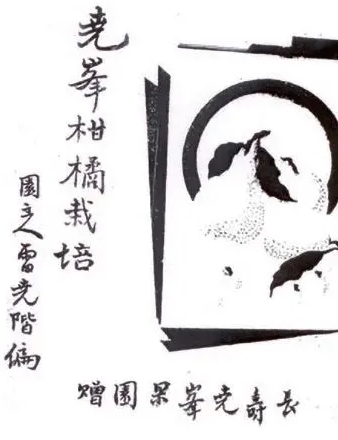 尭峯柑橘栽培
園主人雷尭階偏
長壽尭峯果園贈